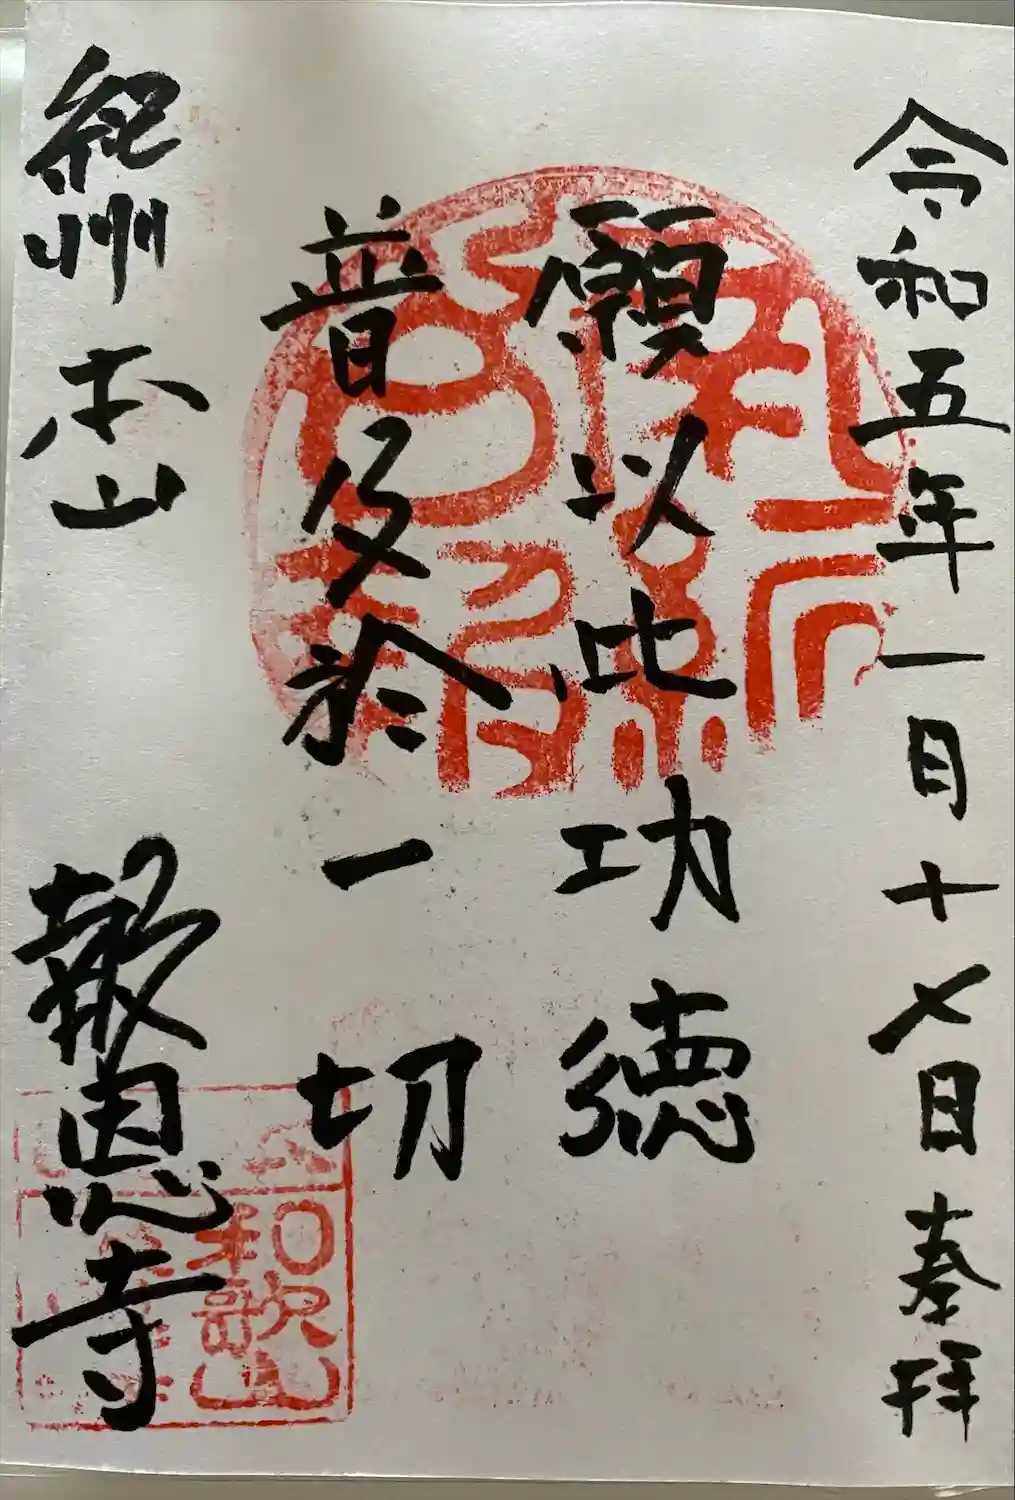 令和五年一月十七日奉拝
願以此功徳
普及於一切
紀州本山 報恩寺
和歌山